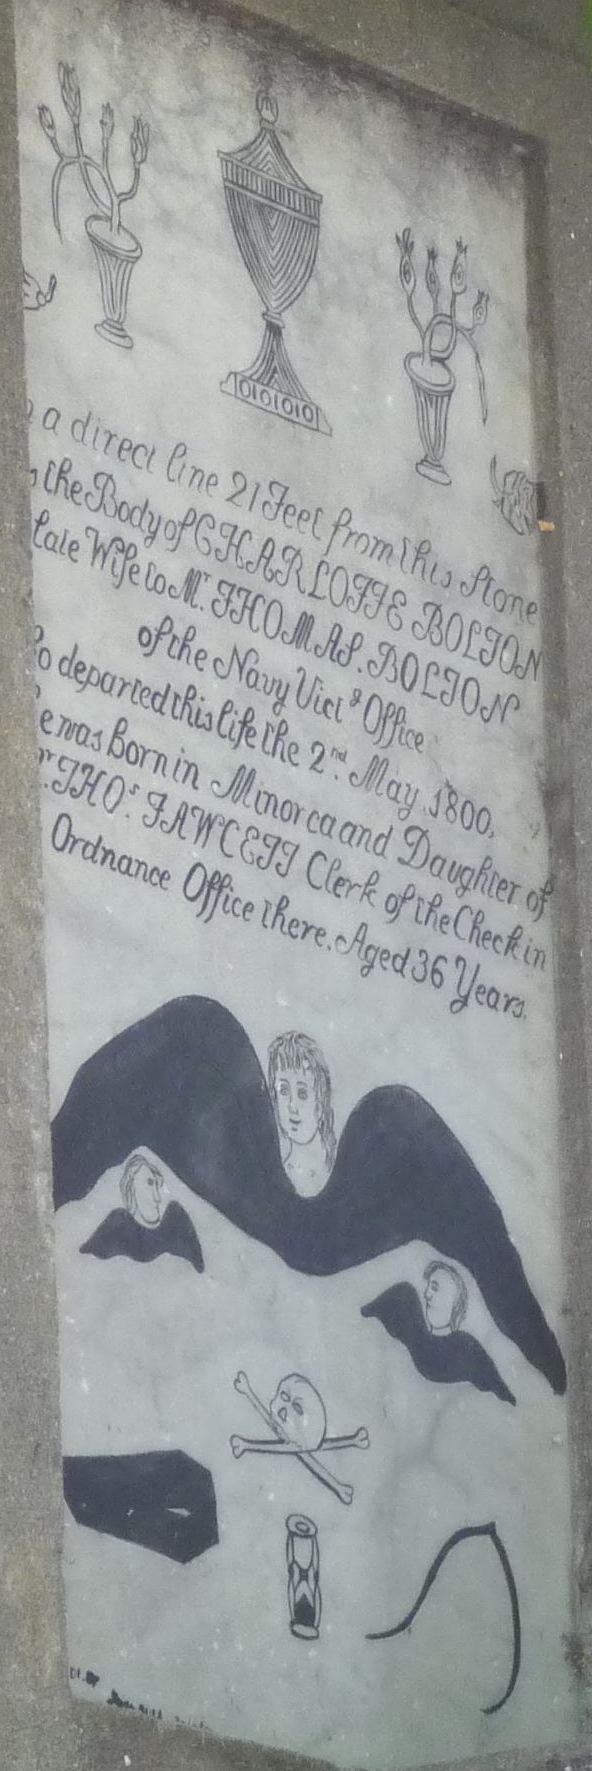 a direct line 21 Feet from this Stone
the Body of CHARLOTTE BOLTON
late Wife to Mr. THOMAS. BOLTON
of the Navy Vict.g Office
departed this life the 2nd. May. 1800,
was Born in Minorca and Daughter of
THOs. FAWCETT Clerk of the Check in
Ordnance Office there. Aged 36 Years.